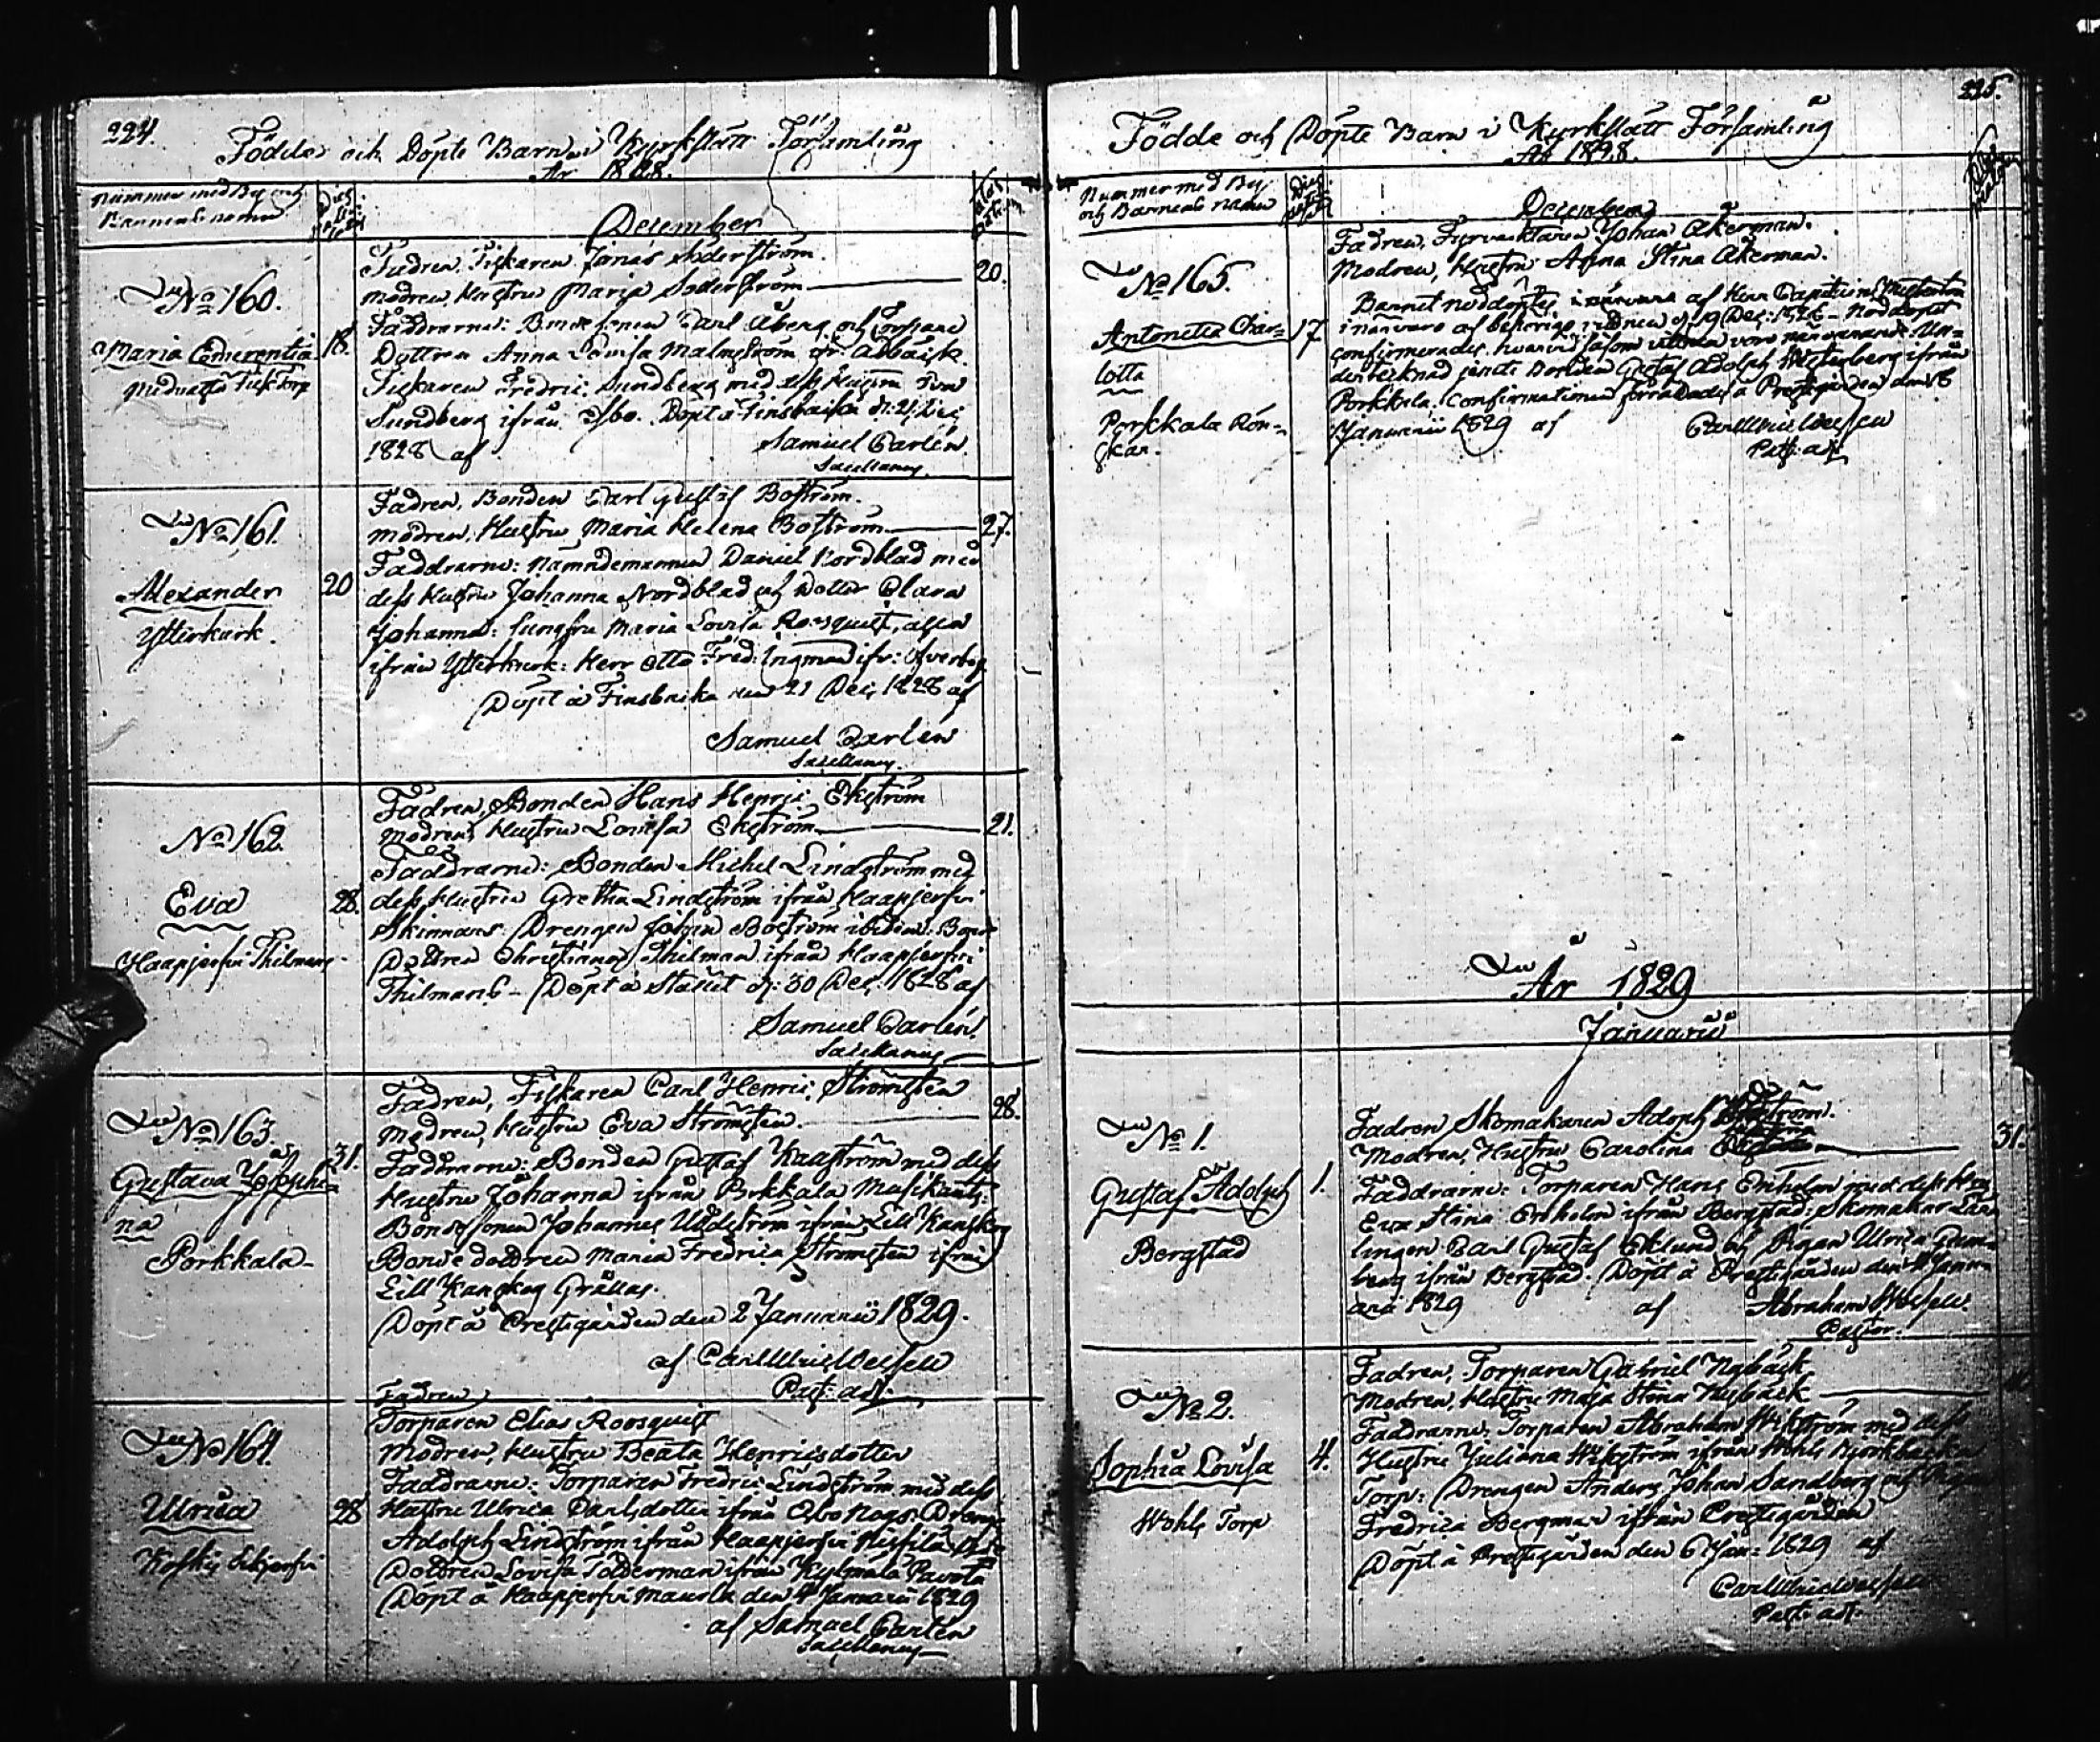 224.
Födde och Döpte Barn i Kyrkslätt Församling
År 1828.
Nummer med By och
Barnens namn
December
No 160.
Maria Emerentia
18.
Fadren, Fiskaren Jonas Söderström.
Modren, Hustru Maria Söderström
20.
Faddrarne: Bondesonen Carl Åberg och Torpare
Dottren Anna Lovisa Malmström
Fiskaren Fredric Sundberg med dess Hustru Eva
Sundberg ifrån Döpt å Finsbacka d: 21 Dec:
1828 af Samuel Carlén
Sacellanus.
No 161.
Alexander
Ytterkurk.
20
Fadren, Bonden Carl Gustaf Boström.
Modren, Hustru Maria Helena Boström
27.
Faddrarne: Nämndemannen Daniel Nordblad med
dess Hustru Johanna Nordblad och Dotter Clara
Johanna: Jungfru Maria Lovisa Rosquist, alla
ifrån Ytterkurk: Herr Otto Fred: Ingman ifr:
Döpt å Finsbacka den 21 Dec: 1828 af
Samuel Carlén
Sacellanus.
No 162.
Eva
Haapjerfvi Thilmans
28.
Fadren, Bonden Hans Henric Ekström
Modren, Hustru Lovisa Ekström
21.
Faddrarne: Bonden Michel Lindström med
dess Hustru Gretha Lindström ifrån Haapjerfvi
Skinnars: Drengen Johan Boström ibidem: Bonde
Dottren Christina Thilman ifrån Haapjerfvi
Thilmans – Döpt å Stället d: 30 Dec: 1828 af
Samuel Carlén
Sacellanus
No 163.
Gustava Josephi-
na
Porkkala
31.
Fadren, Fiskaren Carl Henric Strömsten
Modren, Hustru Eva Strömsten.
28.
Faddrarne: Bonden Gustaf Kaaström med dess
Hustru Johanna ifrån Porkkala Musikants:
Bondesonen Johannes Uddström ifrån Lill Kanskog
Bonde dottren Maria Fredrica Strömsten ifrån
Lill Kanskog Grållas.
Döpt å Prestgården den 2 Januarii 1829.
af Carl Ulric Wessew
Past: adj.
No 164.
Ulrica
28
Fadren
Torparen Elias Roosquist
Modren, Hustru Beata Henricsdotter
Faddrarne: Torparen Fredric Lindström med dess
Hustru Ulrica Carlsdotter ifrån Drengen
Adolph Lindström ifrån Haapjerfvi
Dottren Lovisa Tölderman ifrån Kylmälä Pavola
Döpt å Haapjerfvi Maurla den 4 Januarii 1829
af Samuel Carlén
Sacellanus
225.
Födde och Döpte Barn i Kyrkslätt Församling
År 1828.
Nummer med By
och Barnens namn
December
No 165.
Antonetta Char-
lotta
Porkkala Rön-
skär.
17
Fadren, Fyrvacktaren Johan Åkerman.
Modren, Hustru Anna Stina Åkerman.
Barnet nöddöptes af Herr Capitein
i närvaro af d: 19 Dec: 1828 – Nöddopet
confirmerades, hvarvid såsom vittnen voro närvarande Un-
dertecknad jemte Bonden Gustaf Adolph Westerberg ifrån
Porkkala. Confirmationen förrättades å Prestgården den 6
Januarii 1829 af Carl Ulric Wessew
Past: adj.
År 1829
Januarii
No 1.
Gustaf Adolph
Bergstad
1.
Fadren Skomakaren Adolph
Modren, Hustru Carolina
31.
Faddrarne: Torparen Hans Enholm med dess Hu:
Eva Stina Enholm ifrån Bergstad: Skomakar Lär-
lingen Carl Gustaf Eklund och Pigan Ulrica
ifrån Bergstad. Döpt å Prestgården den Janu-
arii 1829 af Abraham Wessew.
Pastor.
No 2.
Sophia Lovisa
Wohls Torp
4.
Fadren, Torparen Gabriel Nybäck
Modren, Hustru Maja Stina Nybäck
Faddrarne: Torparen Abraham Wikström med dess
Hustru Juliana Wikström ifrån Wohls Björkbacka
Torp: Drengen Anders Johan Sandberg och Pigan
Fredrica Bergman ifrån Prestgården
Döpt å Prestgården den 6 Jan: 1829 af
Carl Ulric Wessew
Past: adj.